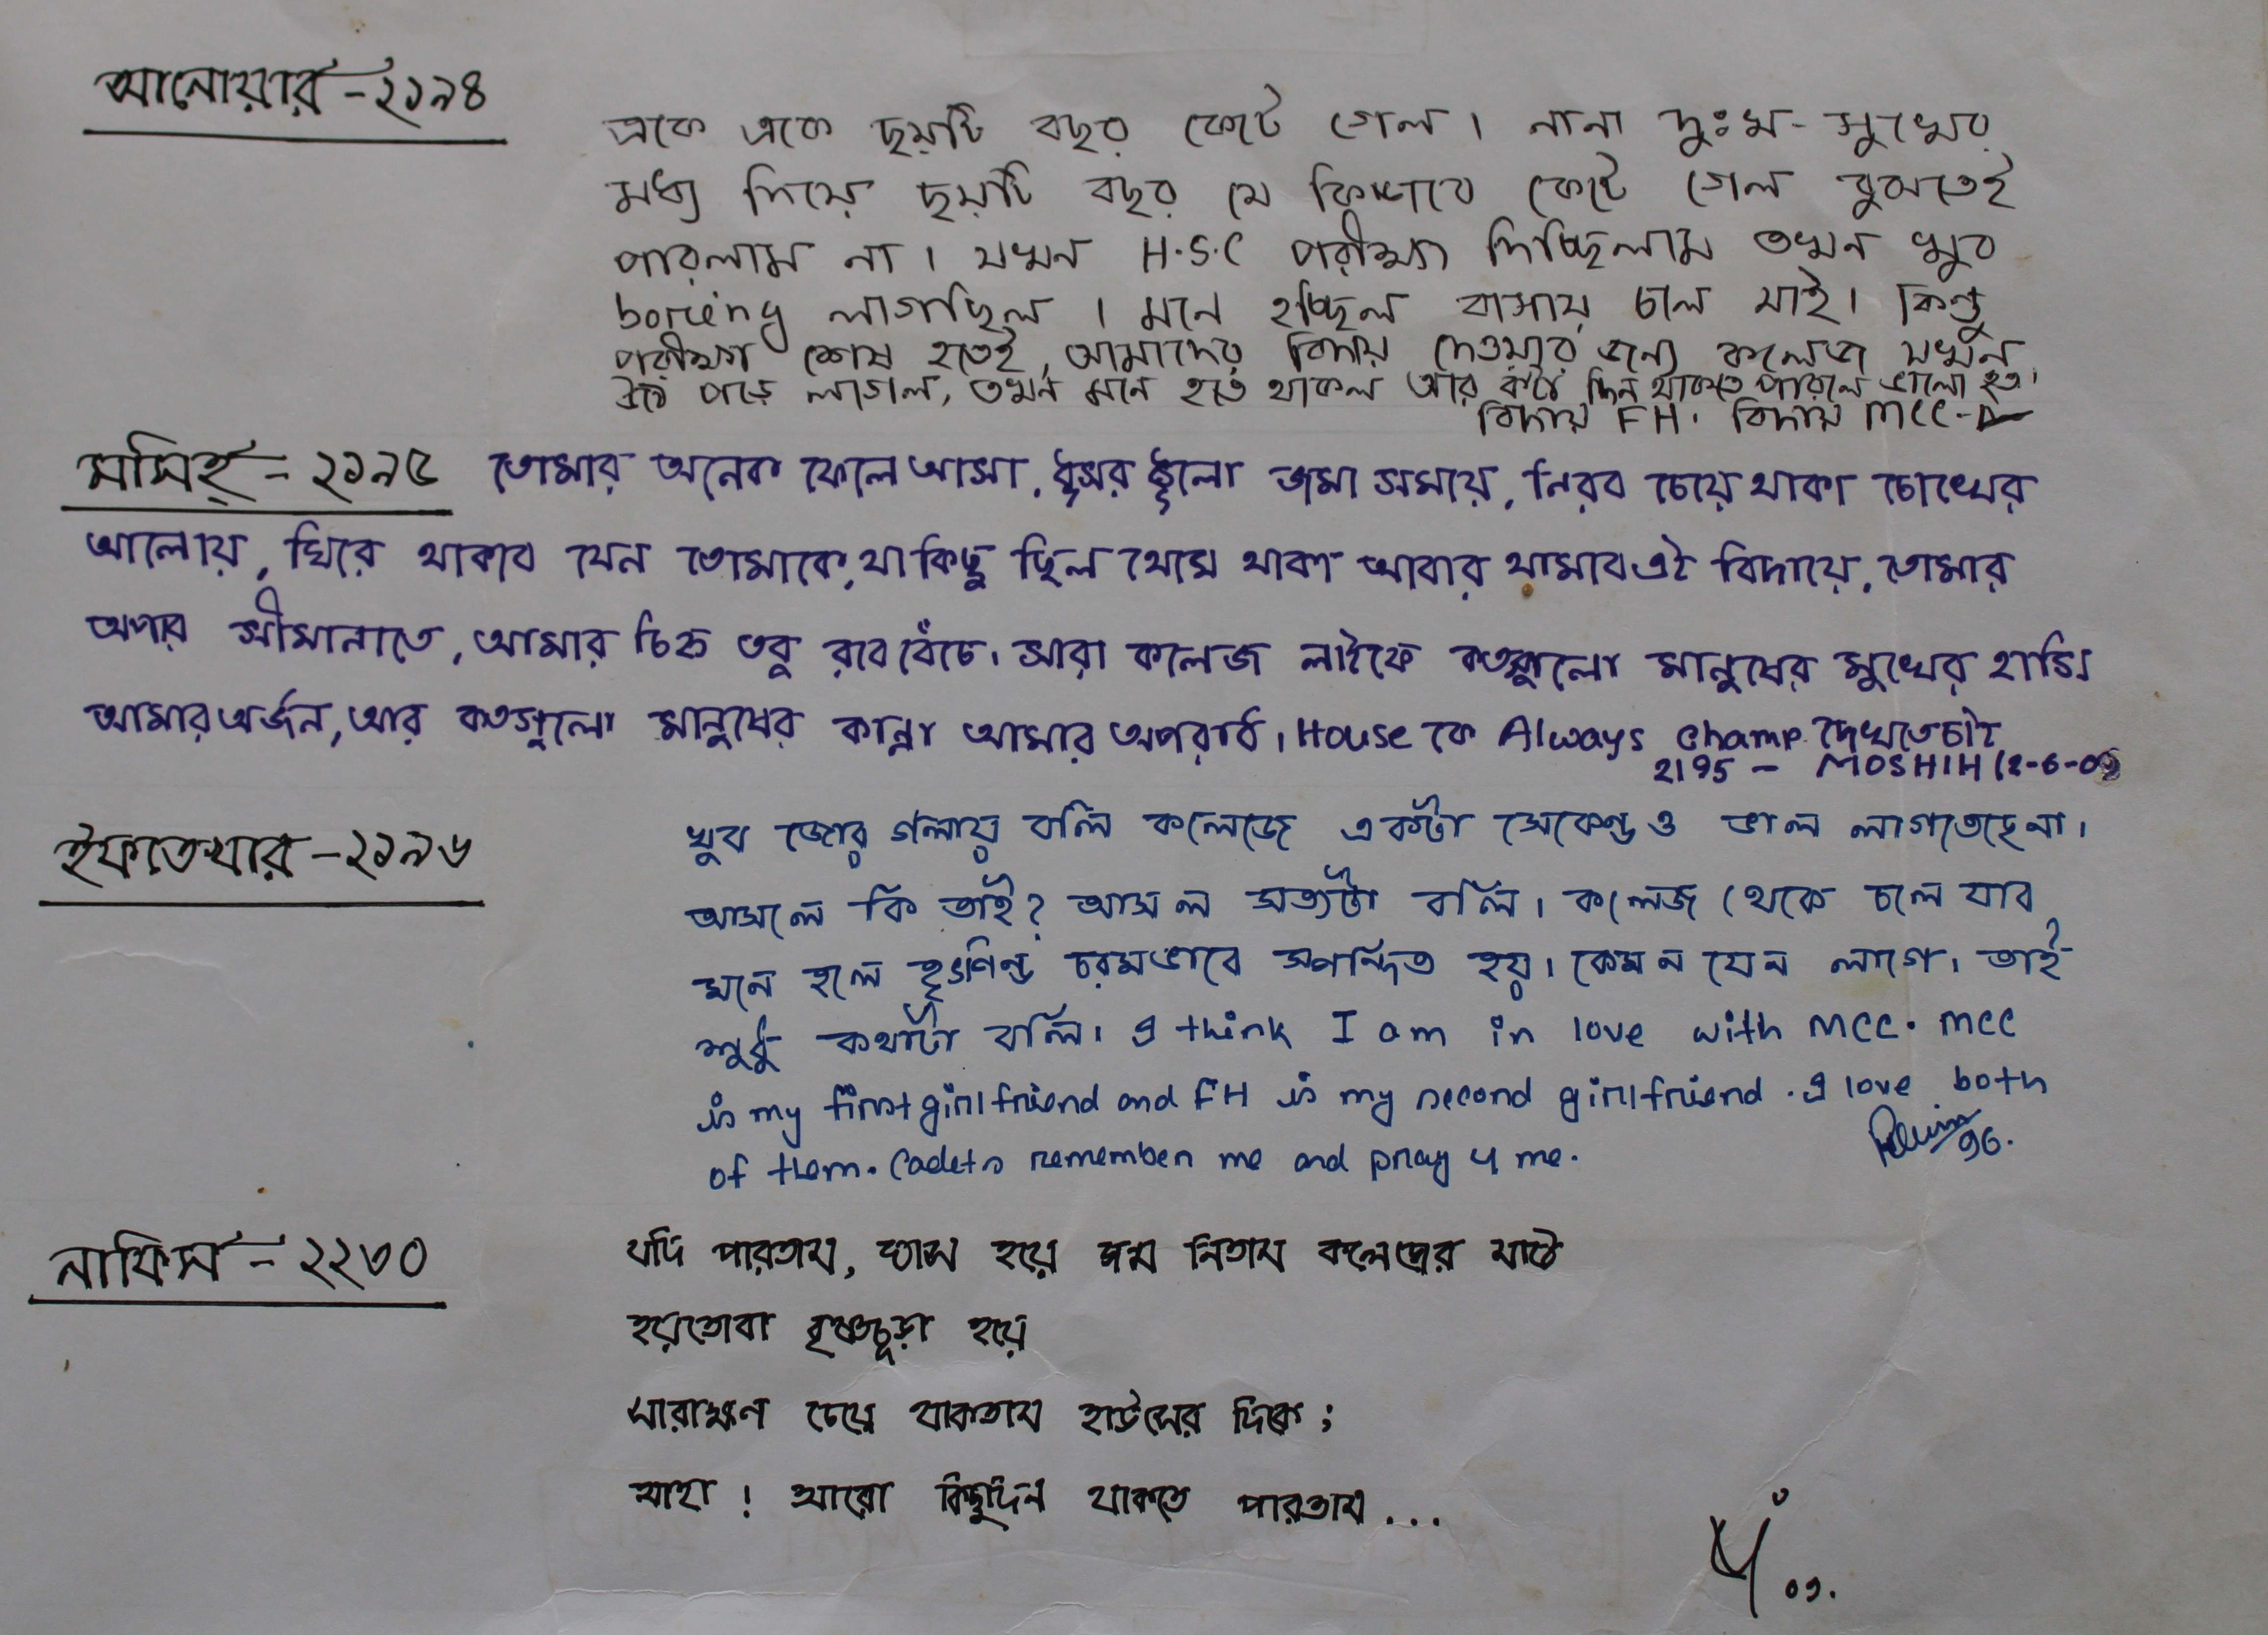 আনোয়ার - ২১৯৪
একে একে ছয়টি বছর কেটে গেল। নানা দুঃখ-সুখের
মধ্য দিয়ে ছয়টি বছর যে কিভাবে কেটে গেল বুঝতেই
পারলাম না। যখন H.S.C পরীক্ষা দিচ্ছিলাম তখন খুব
boring লাগছিল। মনে হচ্ছিল বাসায় চলে যাই। কিন্তু
পরীক্ষা শেষ হতেই, আমাদের বিদায় দেওয়ার জন্য কলেজ যখন
উঠে পড়ে লাগল, তখন মনে হতে থাকল আর কটা দিন থাকতে পারলে ভালো হত।
বিদায় FH. বিদায় MCC-
মসিহ্ - ২১৯৫
তোমার অনেক ফেলে আসা, ধূসর ধূলো জমা সময়ে, নিরব চেয়ে থাকা চোখের
আলোয়, ঘিরে থাকবে যেন তোমাকে, যা কিছু ছিল থেমে থাকা আবার থামাব এই বিদায়ে, তোমার
অপার সীমানাতে, আমার চিহ্ন তবু রবে বেঁচে। সারা কলেজ লাইফে কতগুলো মানুষের মুখের হাসি
আমার অর্জন, আর কতগুলো মানুষের কান্না আমার অপরাধ। House কে Always champ. দেখতে চাই
2195 - MOSHIH
ইফতেখার - ২১৯৬
খুব জোর গলায় বলি কলেজে একটা সেকেন্ডও ভাল লাগতেছেনা।
আসলে কি তাই? আসল সত্যটা বলি। কলেজ থেকে চলে যাব,
মনে হলে হৃৎপিন্ড চরমভাবে স্পন্দিত হয়। কেমন যেন লাগে। তাই
শুধু কথাটা বলি। I think I am in love with MCC. MCC
is my first girlfriend and FH is my second girlfriend. I love both
of them. Cadets remember me and pray 4 me.
96.
নাফিস - ২২৩০
যদি পারতাম, ঘাস হয়ে জন্ম নিতাম কলেজের মাঠে
হয়তোবা কৃষ্ণচূড়া হয়ে
সারাক্ষণ চেয়ে থাকতাম হাউসের দিকে;
আহা! আরো কিছুদিন থাকতে পারতাম...